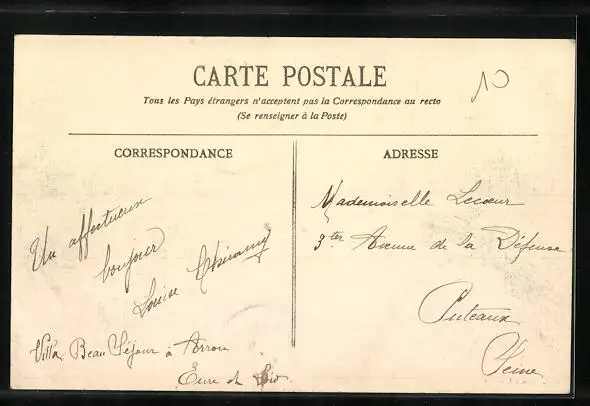 CARTE POSTALE
10
Tous les Pays étrangers n'acceptent pas la Correspondance au recto
(Se renseigner à la Poste)
CORRESPONDANCE
Un affectueux
bonjour
Louise
Villa Beau Séjour à Arrou
Eure et Loir
ADRESSE
Mademoiselle Lecœur
3 ter Avenue de la Défense
Puteaux
Seine